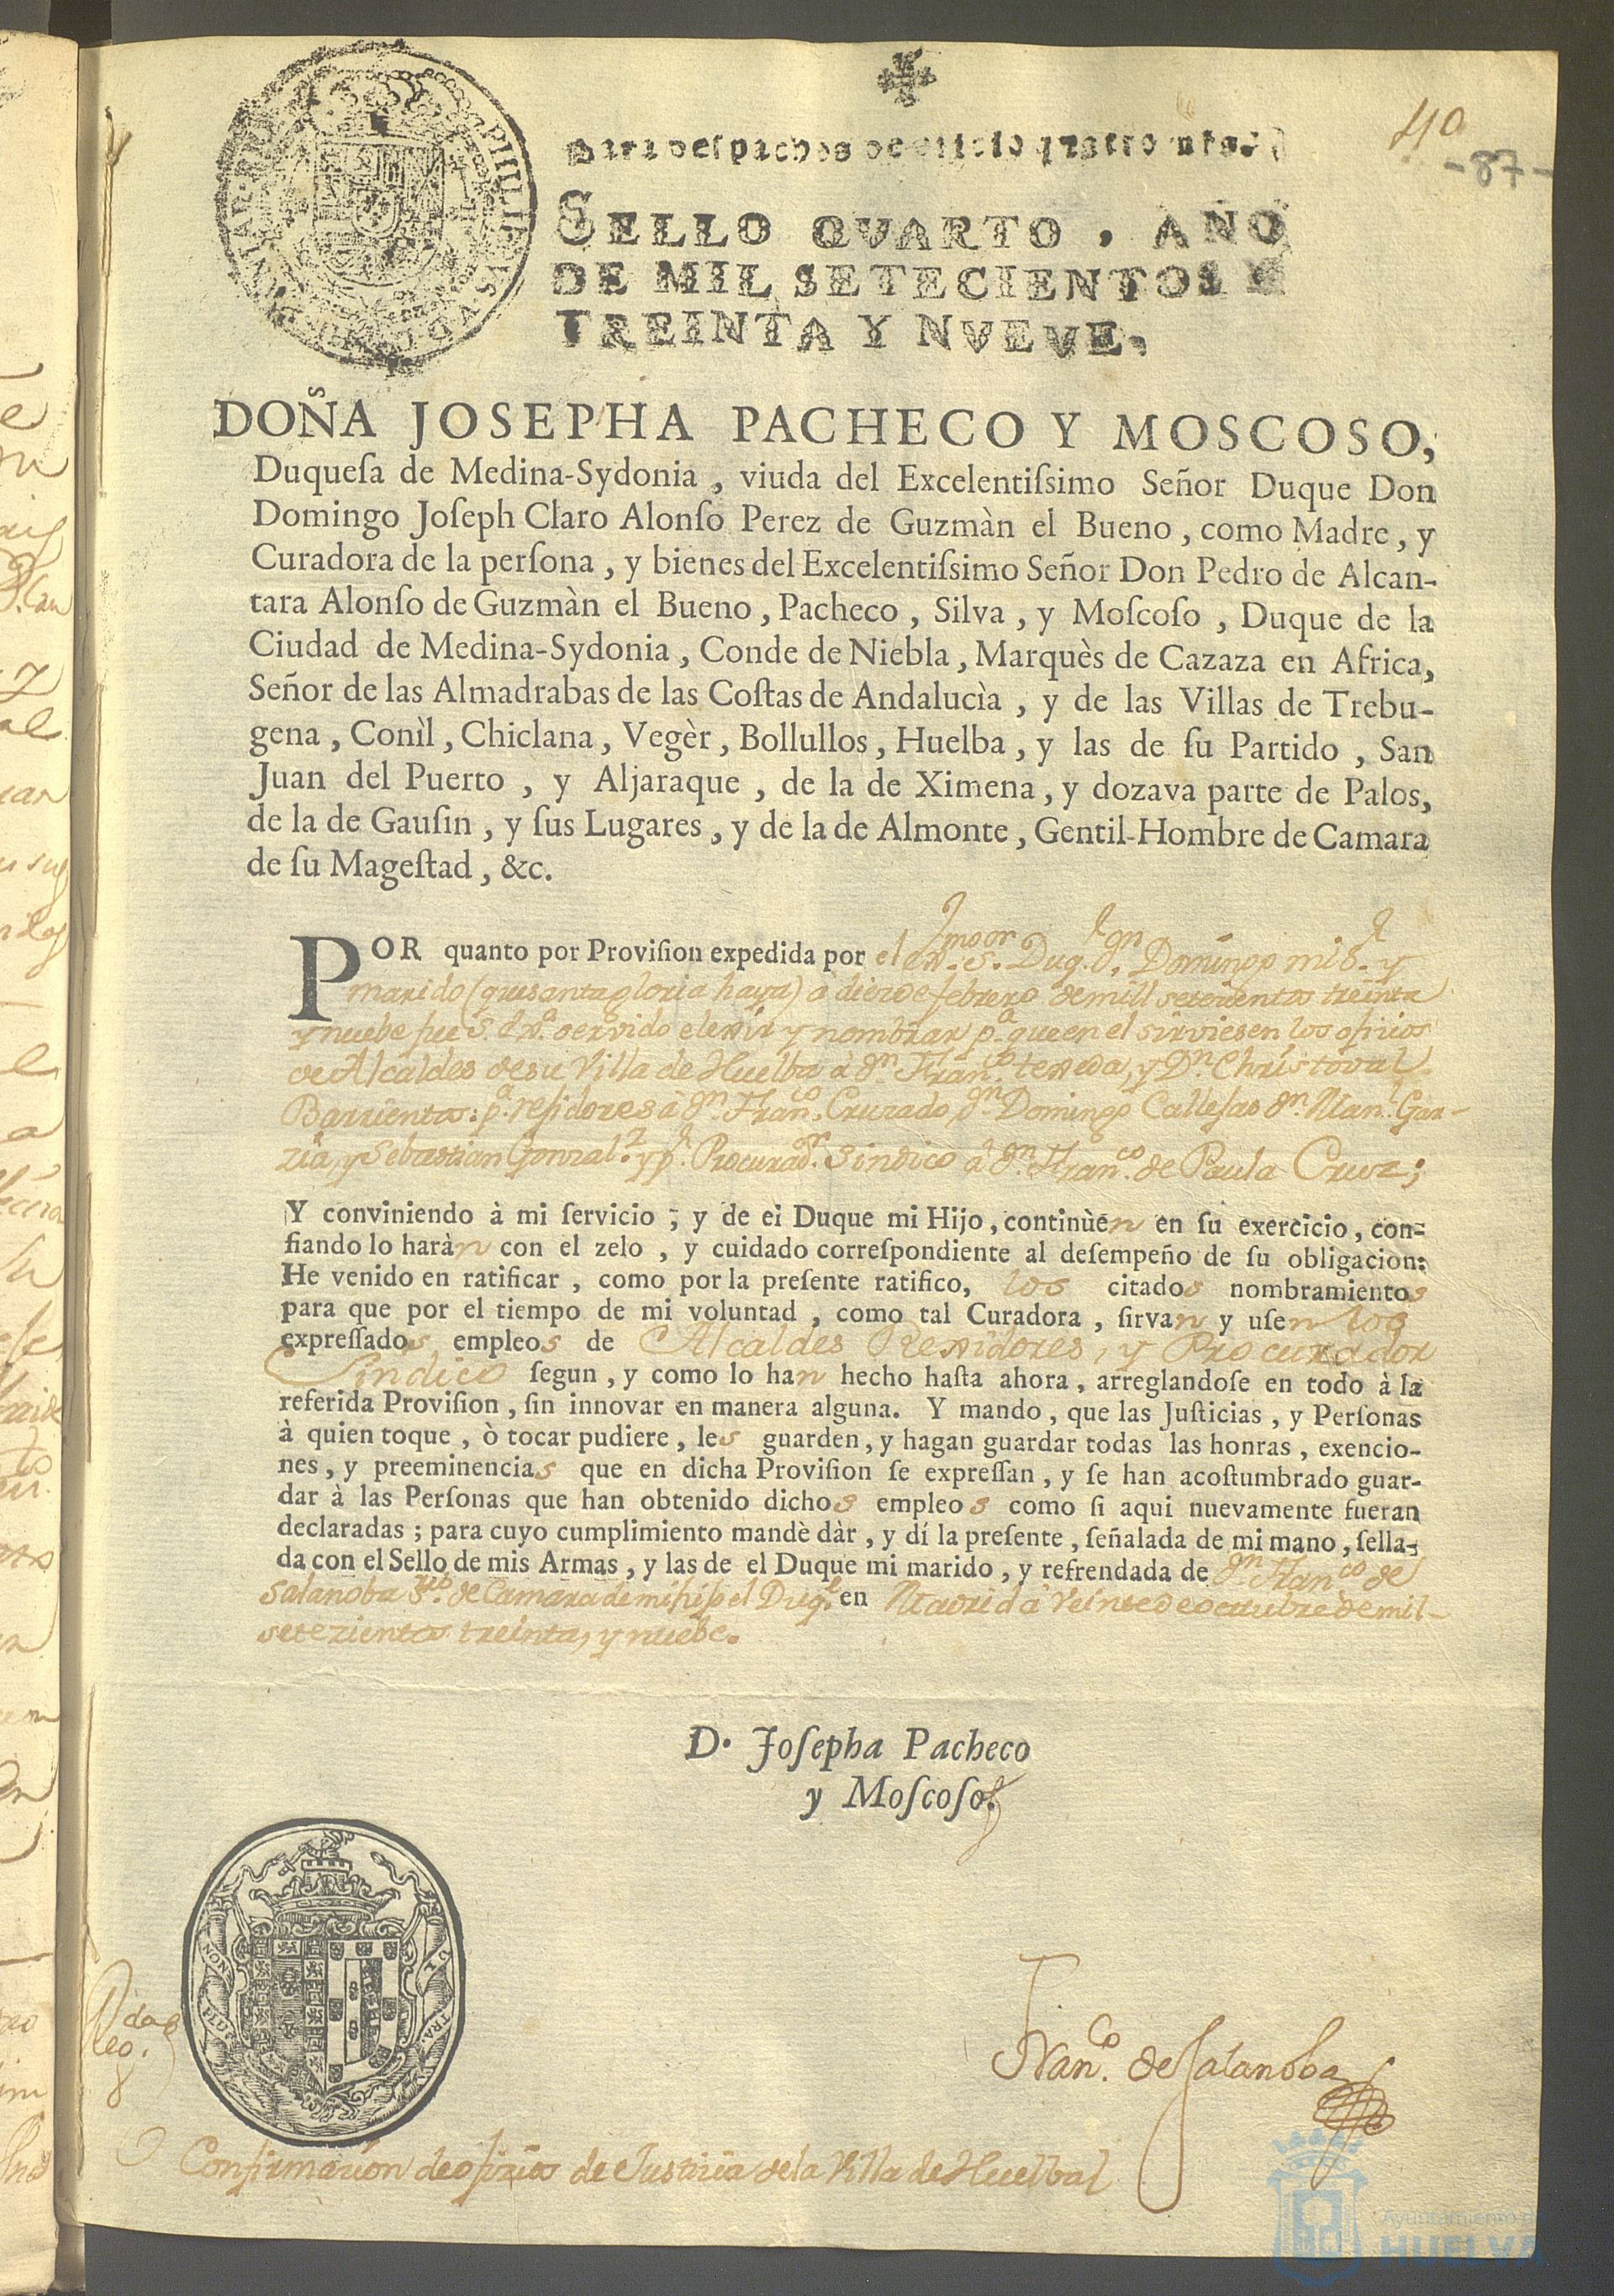 Para despachos de oficio quatro mrs.
SELLO QVARTO, AÑO
DE MIL SETECIENTOS Y
TREINTA Y NVEVE.
40
-87-
DOÑA JOSEPHA PACHECO Y MOSCOSO,
Duqueſa de Medina-Sydonia, viuda del Excelentiſsimo Señor Duque Don
Domingo Joſeph Claro Alonſo Perez de Guzmàn el Bueno, como Madre, y
Curadora de la perſona, y bienes del Excelentiſsimo Señor Don Pedro de Alcan-
tara Alonſo de Guzmàn el Bueno, Pacheco, Silva, y Moſcoſo, Duque de la
Ciudad de Medina-Sydonia, Conde de Niebla, Marquès de Cazaza en Africa,
Señor de las Almadrabas de las Coſtas de Andalucìa, y de las Villas de Trebu-
gena, Conìl, Chiclana, Vegèr, Bollullos, Huelba, y las de ſu Partido, San
Juan del Puerto, y Aljaraque, de la de Ximena, y dozava parte de Palos,
de la de Gauſin, y ſus Lugares, y de la de Almonte, Gentil-Hombre de Camara
de ſu Mageſtad, &c.
POR quanto por Proviſion expedida por el Exmo. Sor. Duq. Dn. Domingo mi Sr. y
marido (que santa gloria haya) a diez de febrero de mill setezientos treinta
y nuebe fue S. Exa. servido elexir y nombrar pa. que en el sirviesen los ofizios
de Alcaldes de su Villa de Huelba à Dn. Franco. texeda, y Dn. Christoval
Barrientos: pa. rejidores à Dn. Franco. Cruzado, Dn. Domingo Callejas Dn. Manl. Gar-
zia, y Sebastian Gonzalz. y pr. Procuradr. Sindico à Dn. Franco. de Paula Cruz;
Y conviniendo à mi ſervicio, y de el Duque mi Hijo, continùen en ſu exercicio, con-
fiando lo haràn con el zelo, y cuidado correſpondiente al deſempeño de ſu obligacion:
He venido en ratificar, como por la preſente ratifico, los citados nombramientos
para que por el tiempo de mi voluntad, como tal Curadora, ſirvan y uſen los
expreſſados empleos de Alcaldes Rexidores, y Procurador
Sindico ſegun, y como lo han hecho haſta ahora, arreglandoſe en todo à la
referida Proviſion, ſin innovar en manera alguna. Y mando, que las Juſticias, y Perſonas
à quien toque, ò tocar pudiere, les guarden, y hagan guardar todas las honras, exencio-
nes, y preeminencias que en dicha Proviſion ſe expreſſan, y ſe han acoſtumbrado guar-
dar à las Perſonas que han obtenido dichos empleos como ſi aqui nuevamente fueran
declaradas; para cuyo cumplimiento mandè dàr, y dí la preſente, ſeñalada de mi mano, ſella-
da con el Sello de mis Armas, y las de el Duque mi marido, y refrendada de Dn. Franco. de
Salanoba Srio. de Camara de mi hijo el Duqe. en Madrid à Veinte de octubre de mil
setezientos treinta, y nuebe.
D. Joſepha Pacheco
y Moſcoſo.
NON
PLVS
VL
TRA.
Franco. de Salanoba
Confirmazion de ofizios de Justizia de la Villa de Huelba
Ayuntamiento de
HUELVA